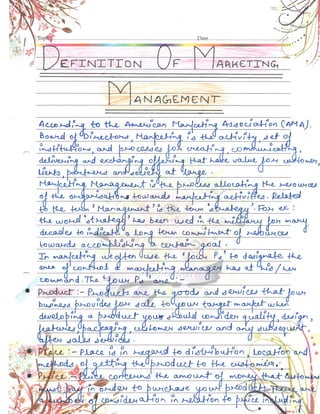 Date
DEFINITION OF MARKETING
MANAGEMENT
According to the American Marketing Association (AMA).
Board of Directors, Marketing is the activity, set of
institutions, and processes for creating, communicating,
delivering and exchanging offering that have value for customer,
lients, partners and society at large.
Marketing Management is the process allocating the resources
of the organisations towards marketing activities. Related
to the term 'Management' is the term strategy. For ex:
the word 'strategy' has been used in the military for many
decades to indicate a long term commitment of resources
towards accomplishing a certain goal.
In marketing we often use the 'four Ps' to designate the
area of control a marketing manager has at his/her
command. The 'four Ps' are
Product :- Products are the goods and services that your
business provides for sale to your target market when
developing a product you should consider quality, design,
features packaging, customer service and any subsequent
after sales services.
Place :- Place is in regard to distribution, location and
methods of getting the product to the customer.
Price :- Price concerns the amount of money that customers
must pay in order to purchase your product There are
a number of consideration in relation to price including